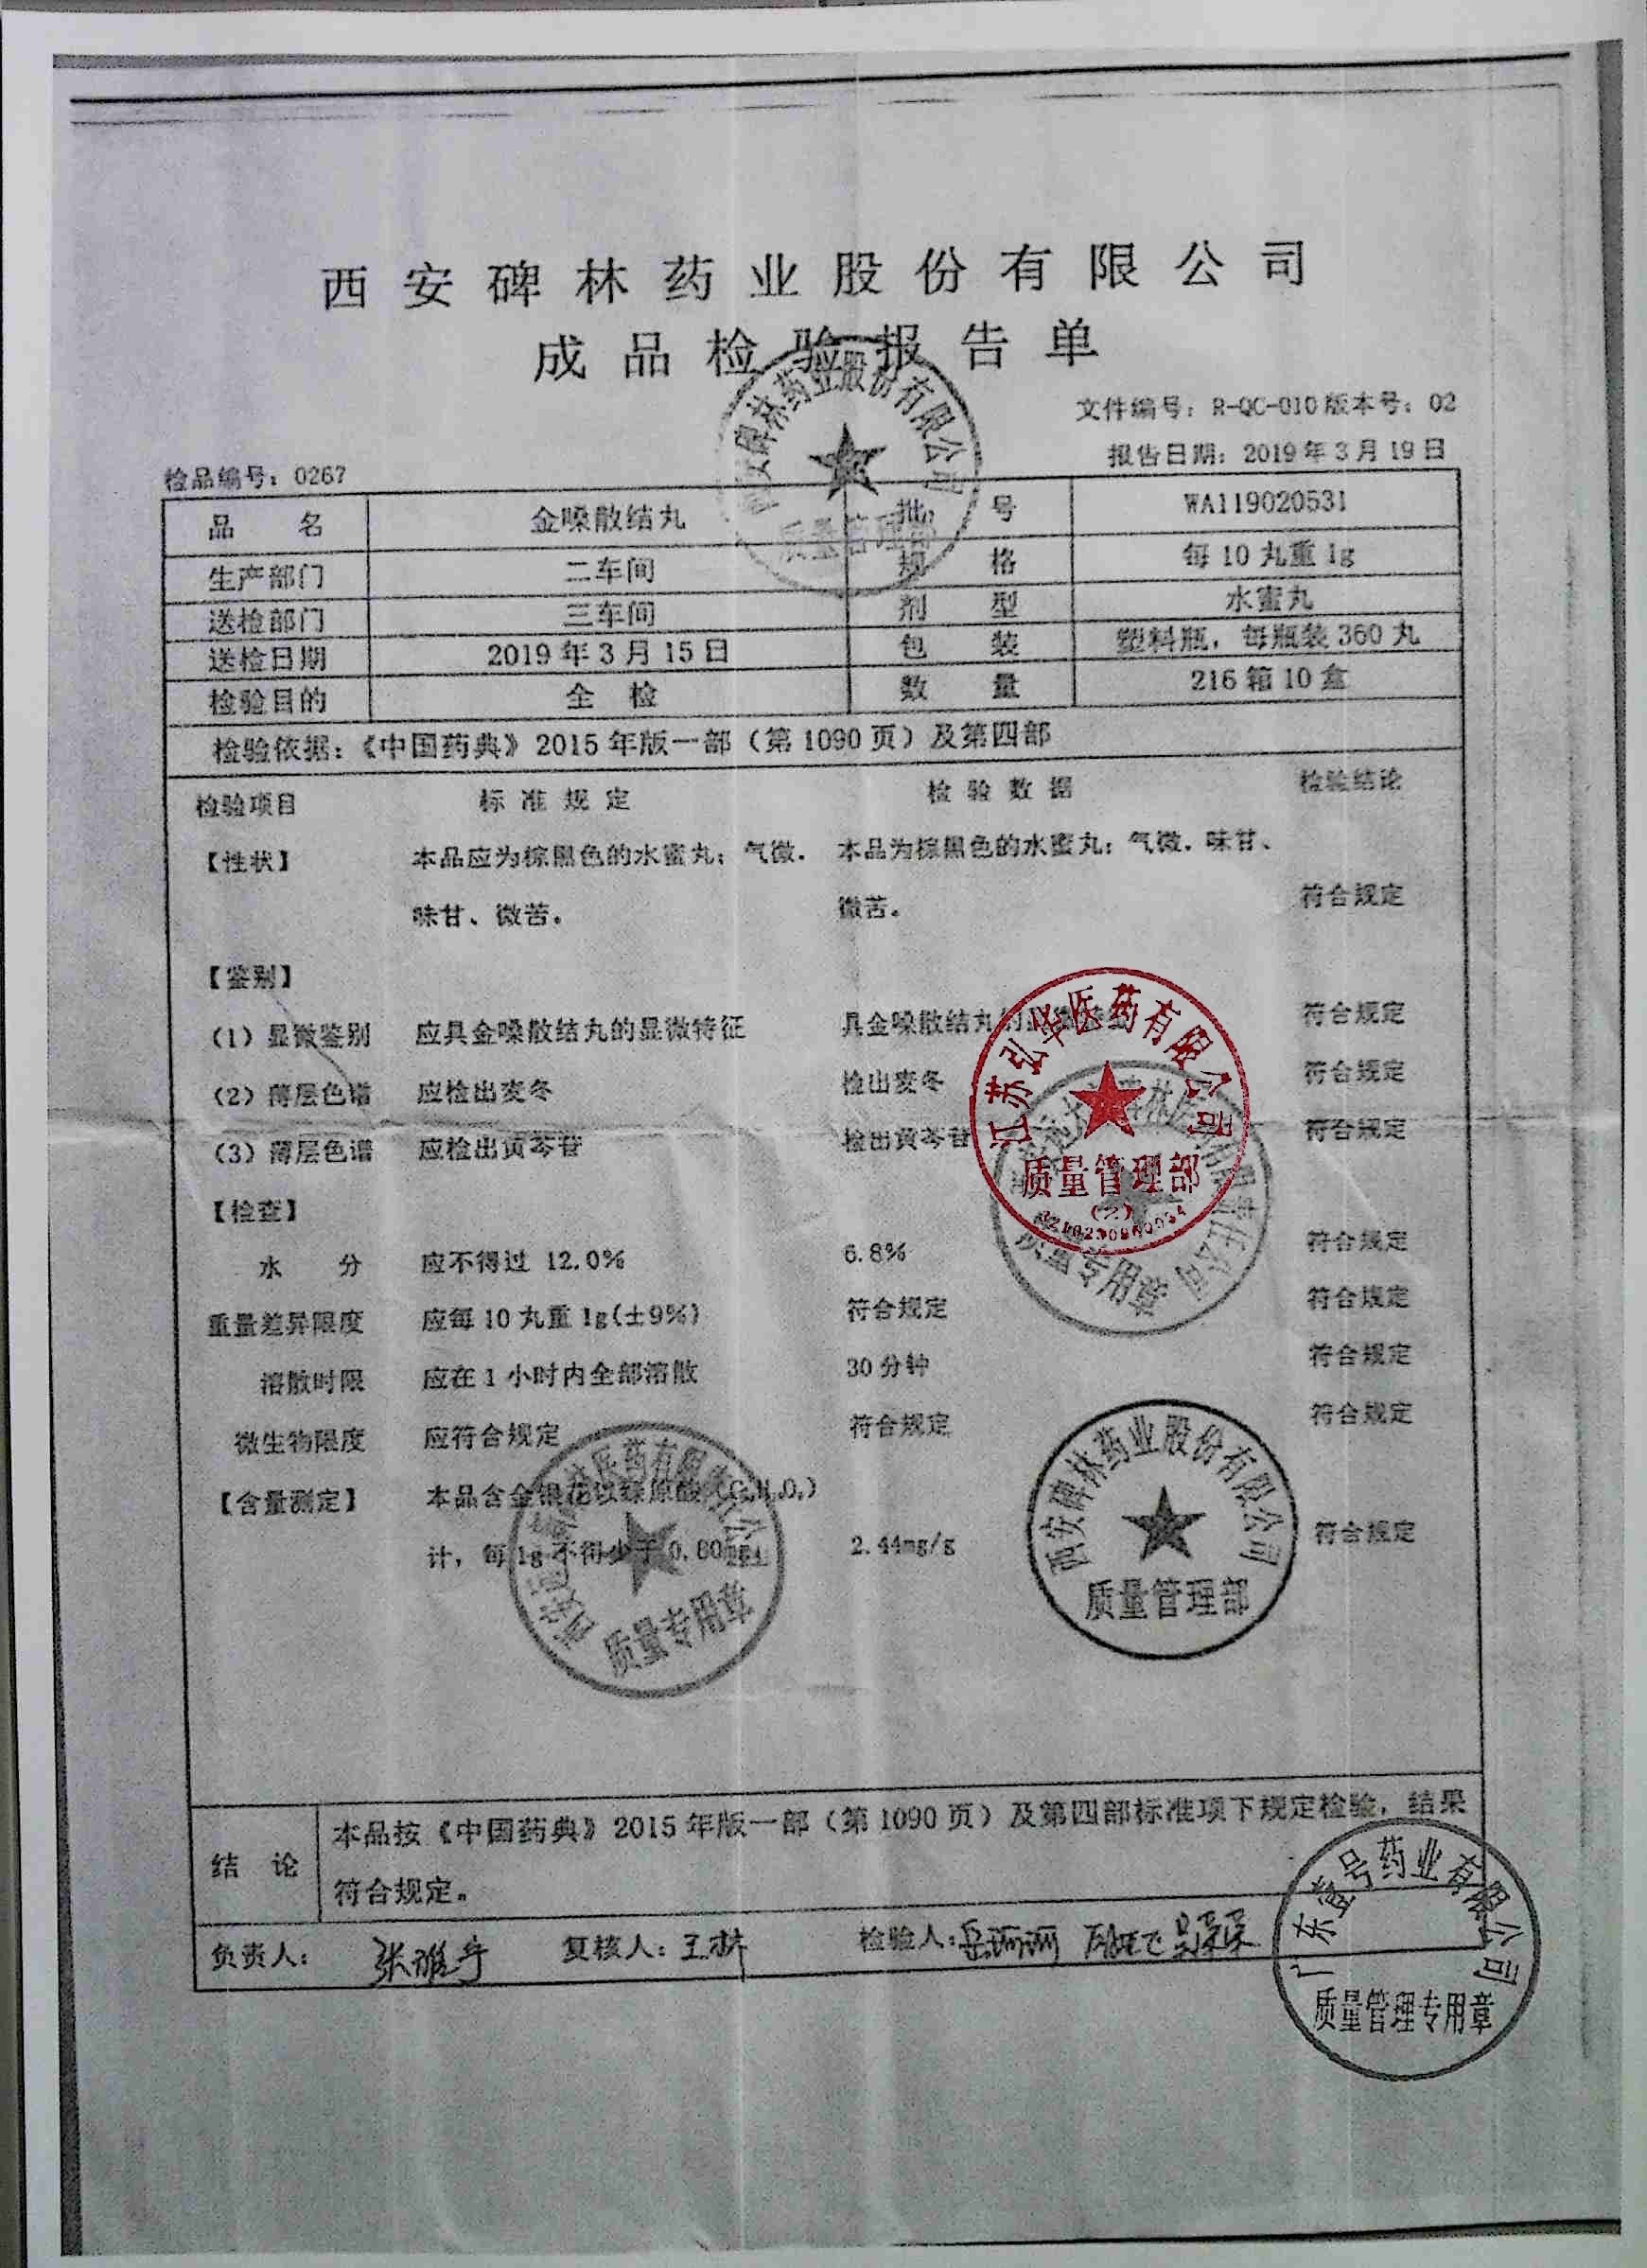 西安碑林药业股份有限公司
成品检验报告单
文件编号：R-QC-010 版本号：02
检品编号：0267
报告日期：2019年3月19日
品 名 金嗓散结丸 批 号 WA119020531
生产部门 二车间 规 格 每10丸重1g
送检部门 三车间 剂 型 水蜜丸
送检日期 2019年3月15日 包 装 塑料瓶，每瓶装360丸
检验目的 全 检 数 量 216箱10盒
检验依据：《中国药典》2015年版一部（第1090页）及第四部
检验项目 标准规定 检验数据 检验结论
【性状】 本品应为棕黑色的水蜜丸；气微，本品为棕黑色的水蜜丸；气微，味甘、
味甘、微苦。 微苦。 符合规定
【鉴别】
（1）显微鉴别 应具金嗓散结丸的显微特征 具金嗓散结丸的显微特征 符合规定
（2）薄层色谱 应检出麦冬 检出麦冬 符合规定
（3）薄层色谱 应检出黄芩苷 检出黄芩苷 符合规定
【检查】
水 分 应不得过 12.0% 6.8% 符合规定
重量差异限度 应每10丸重1g(±9%) 符合规定 符合规定
溶散时限 应在1小时内全部溶散 30分钟 符合规定
微生物限度 应符合规定 符合规定 符合规定
【含量测定】 本品含金银花以绿原酸
计，每1g不得少于0.60mg 2.44mg/g 符合规定
结 论 本品按《中国药典》2015年版一部（第1090页）及第四部标准项下规定检验，结果
符合规定。
负责人： 复核人：王 检验人：
西安碑林药业股份有限公司
质量管理部
江苏弘华医药有限公司
质量管理部
（2）
质量专用章
质量专用章
西安碑林药业股份有限公司
质量管理部
广东壹号药业有限公司
质量管理专用章